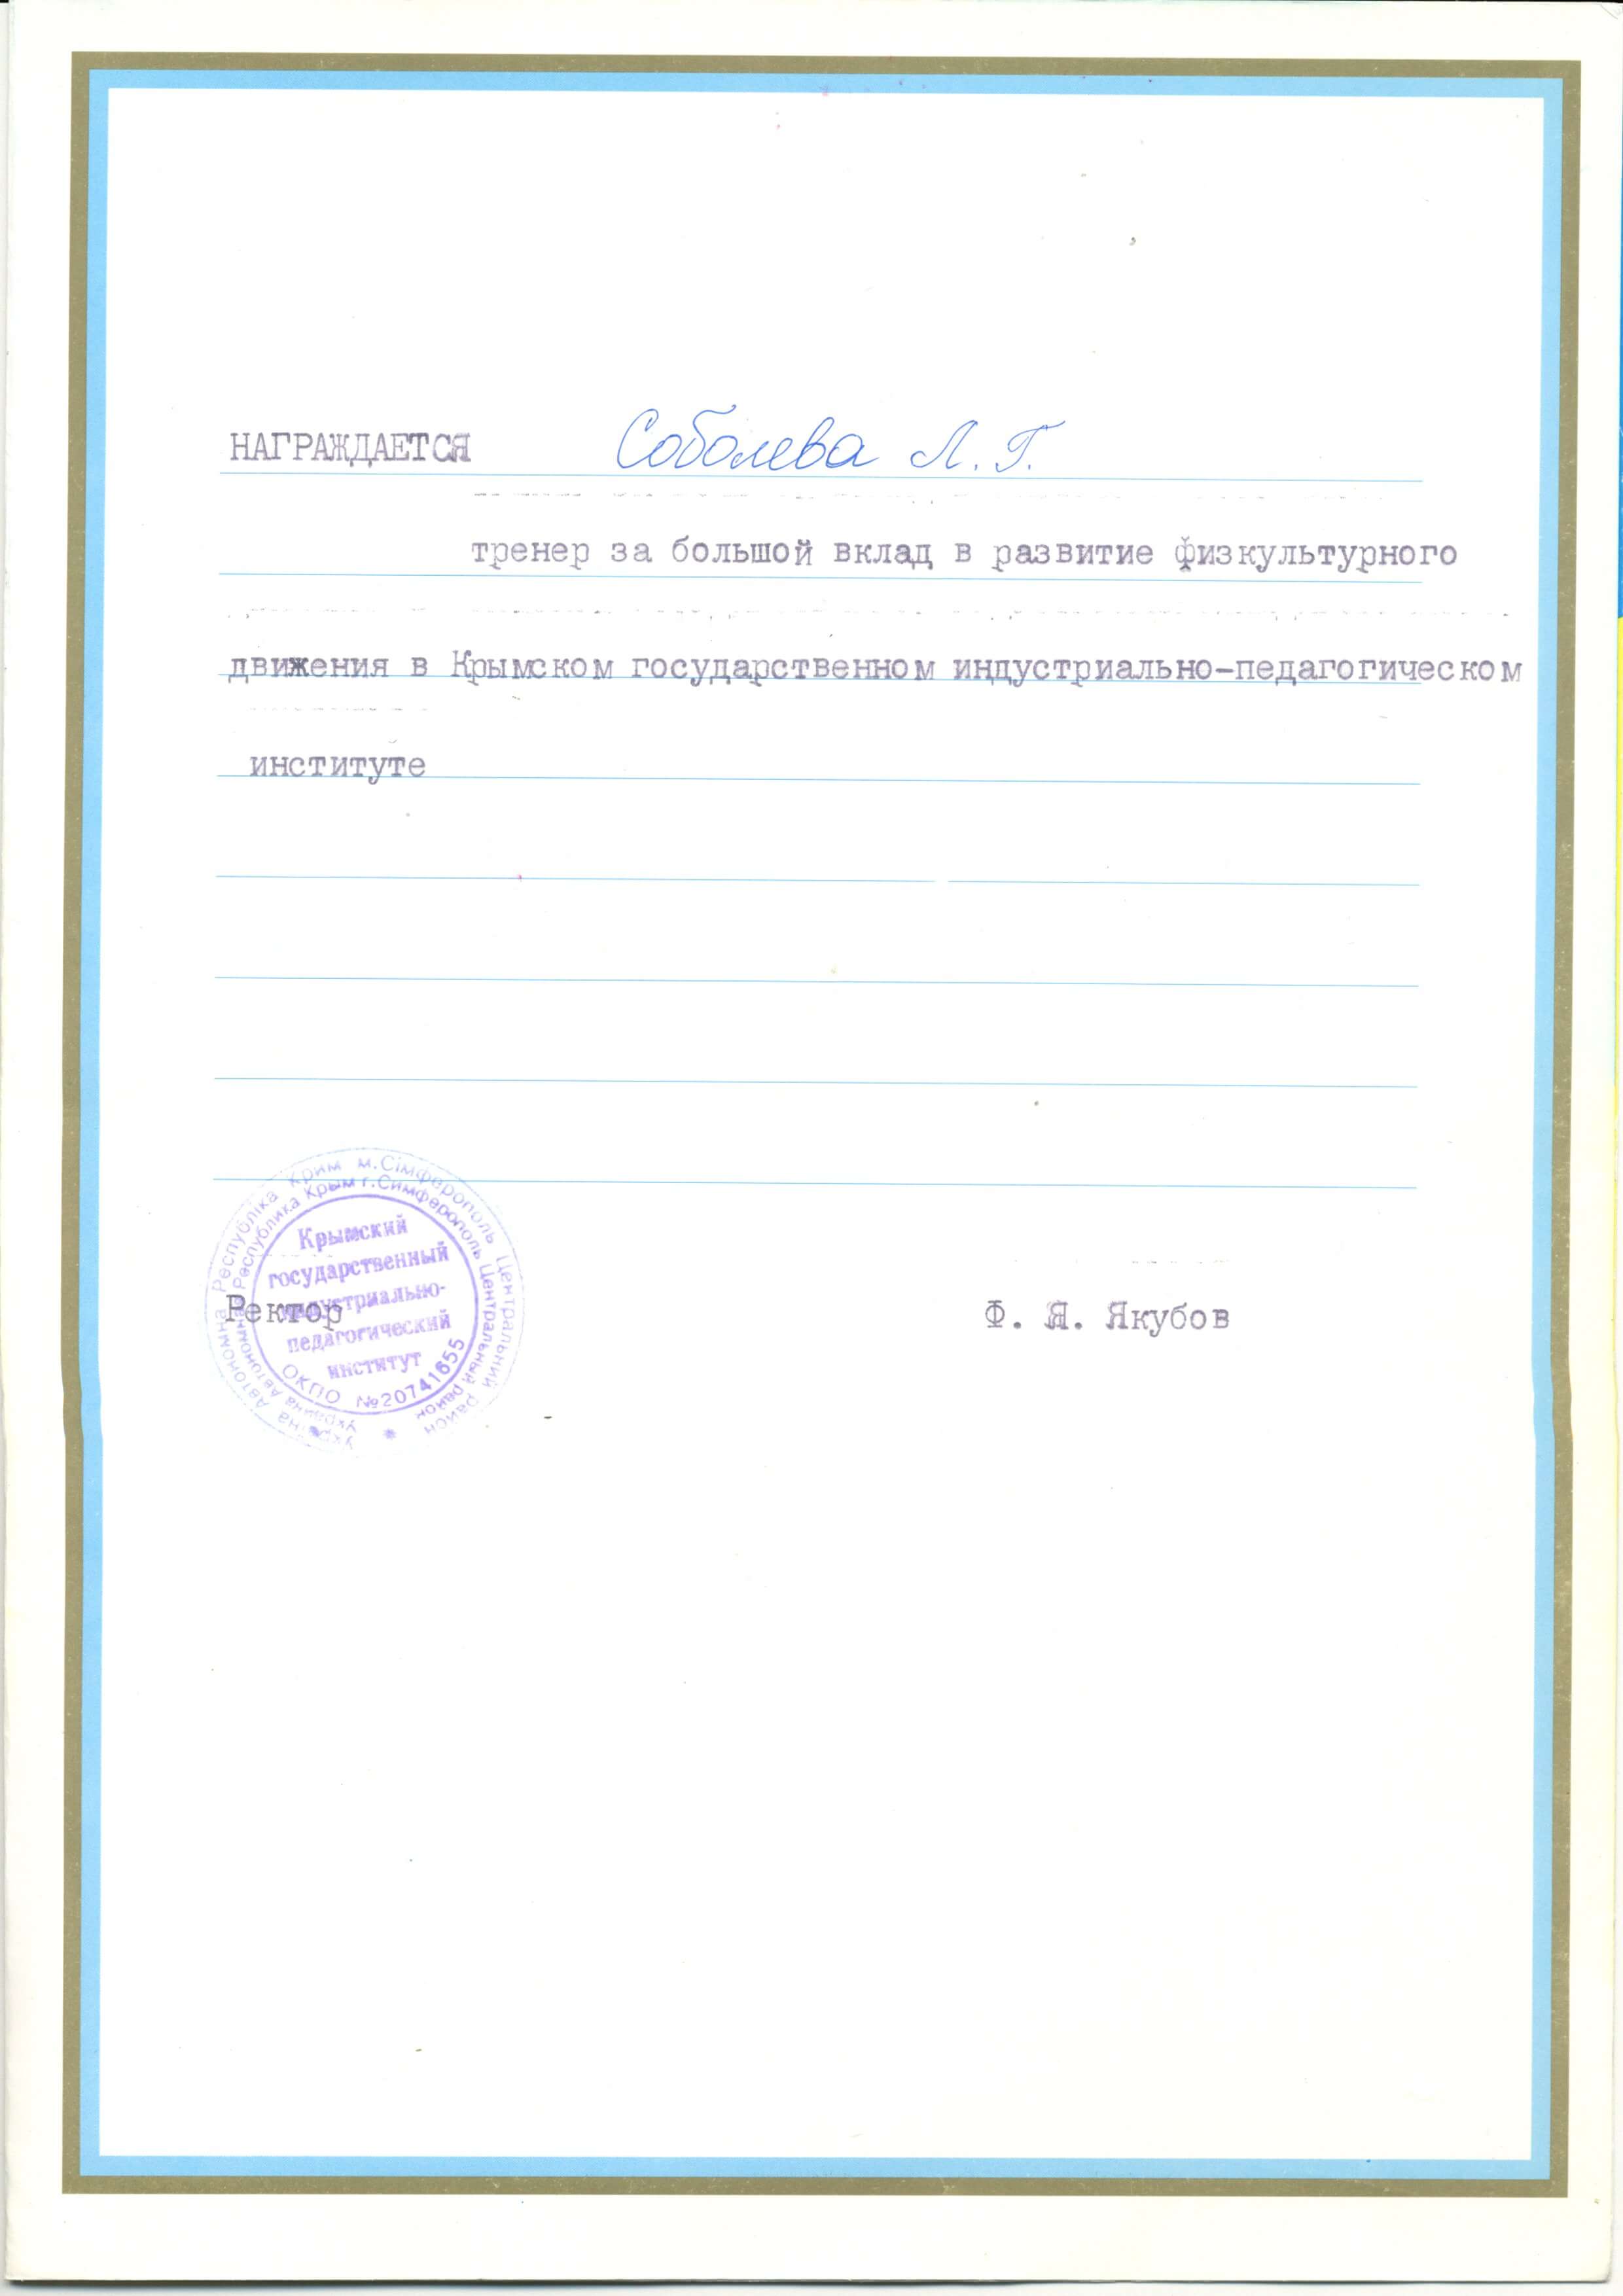 НАГРАЖДАЕТСЯ Соболева Л. Г.
тренер за большой вклад в развитие физкультурного
движения в Крымском государственном индустриально-педагогическом
институте
Україна Автономна Республіка Крим м.Сімферополь Центральний район
Украина Автономная Республика Крым г.Симферополь Центральный район
Крымский
государственный
индустриально-
педагогический
институт
ОКПО №20741655
Ректор Ф. Я. Якубов